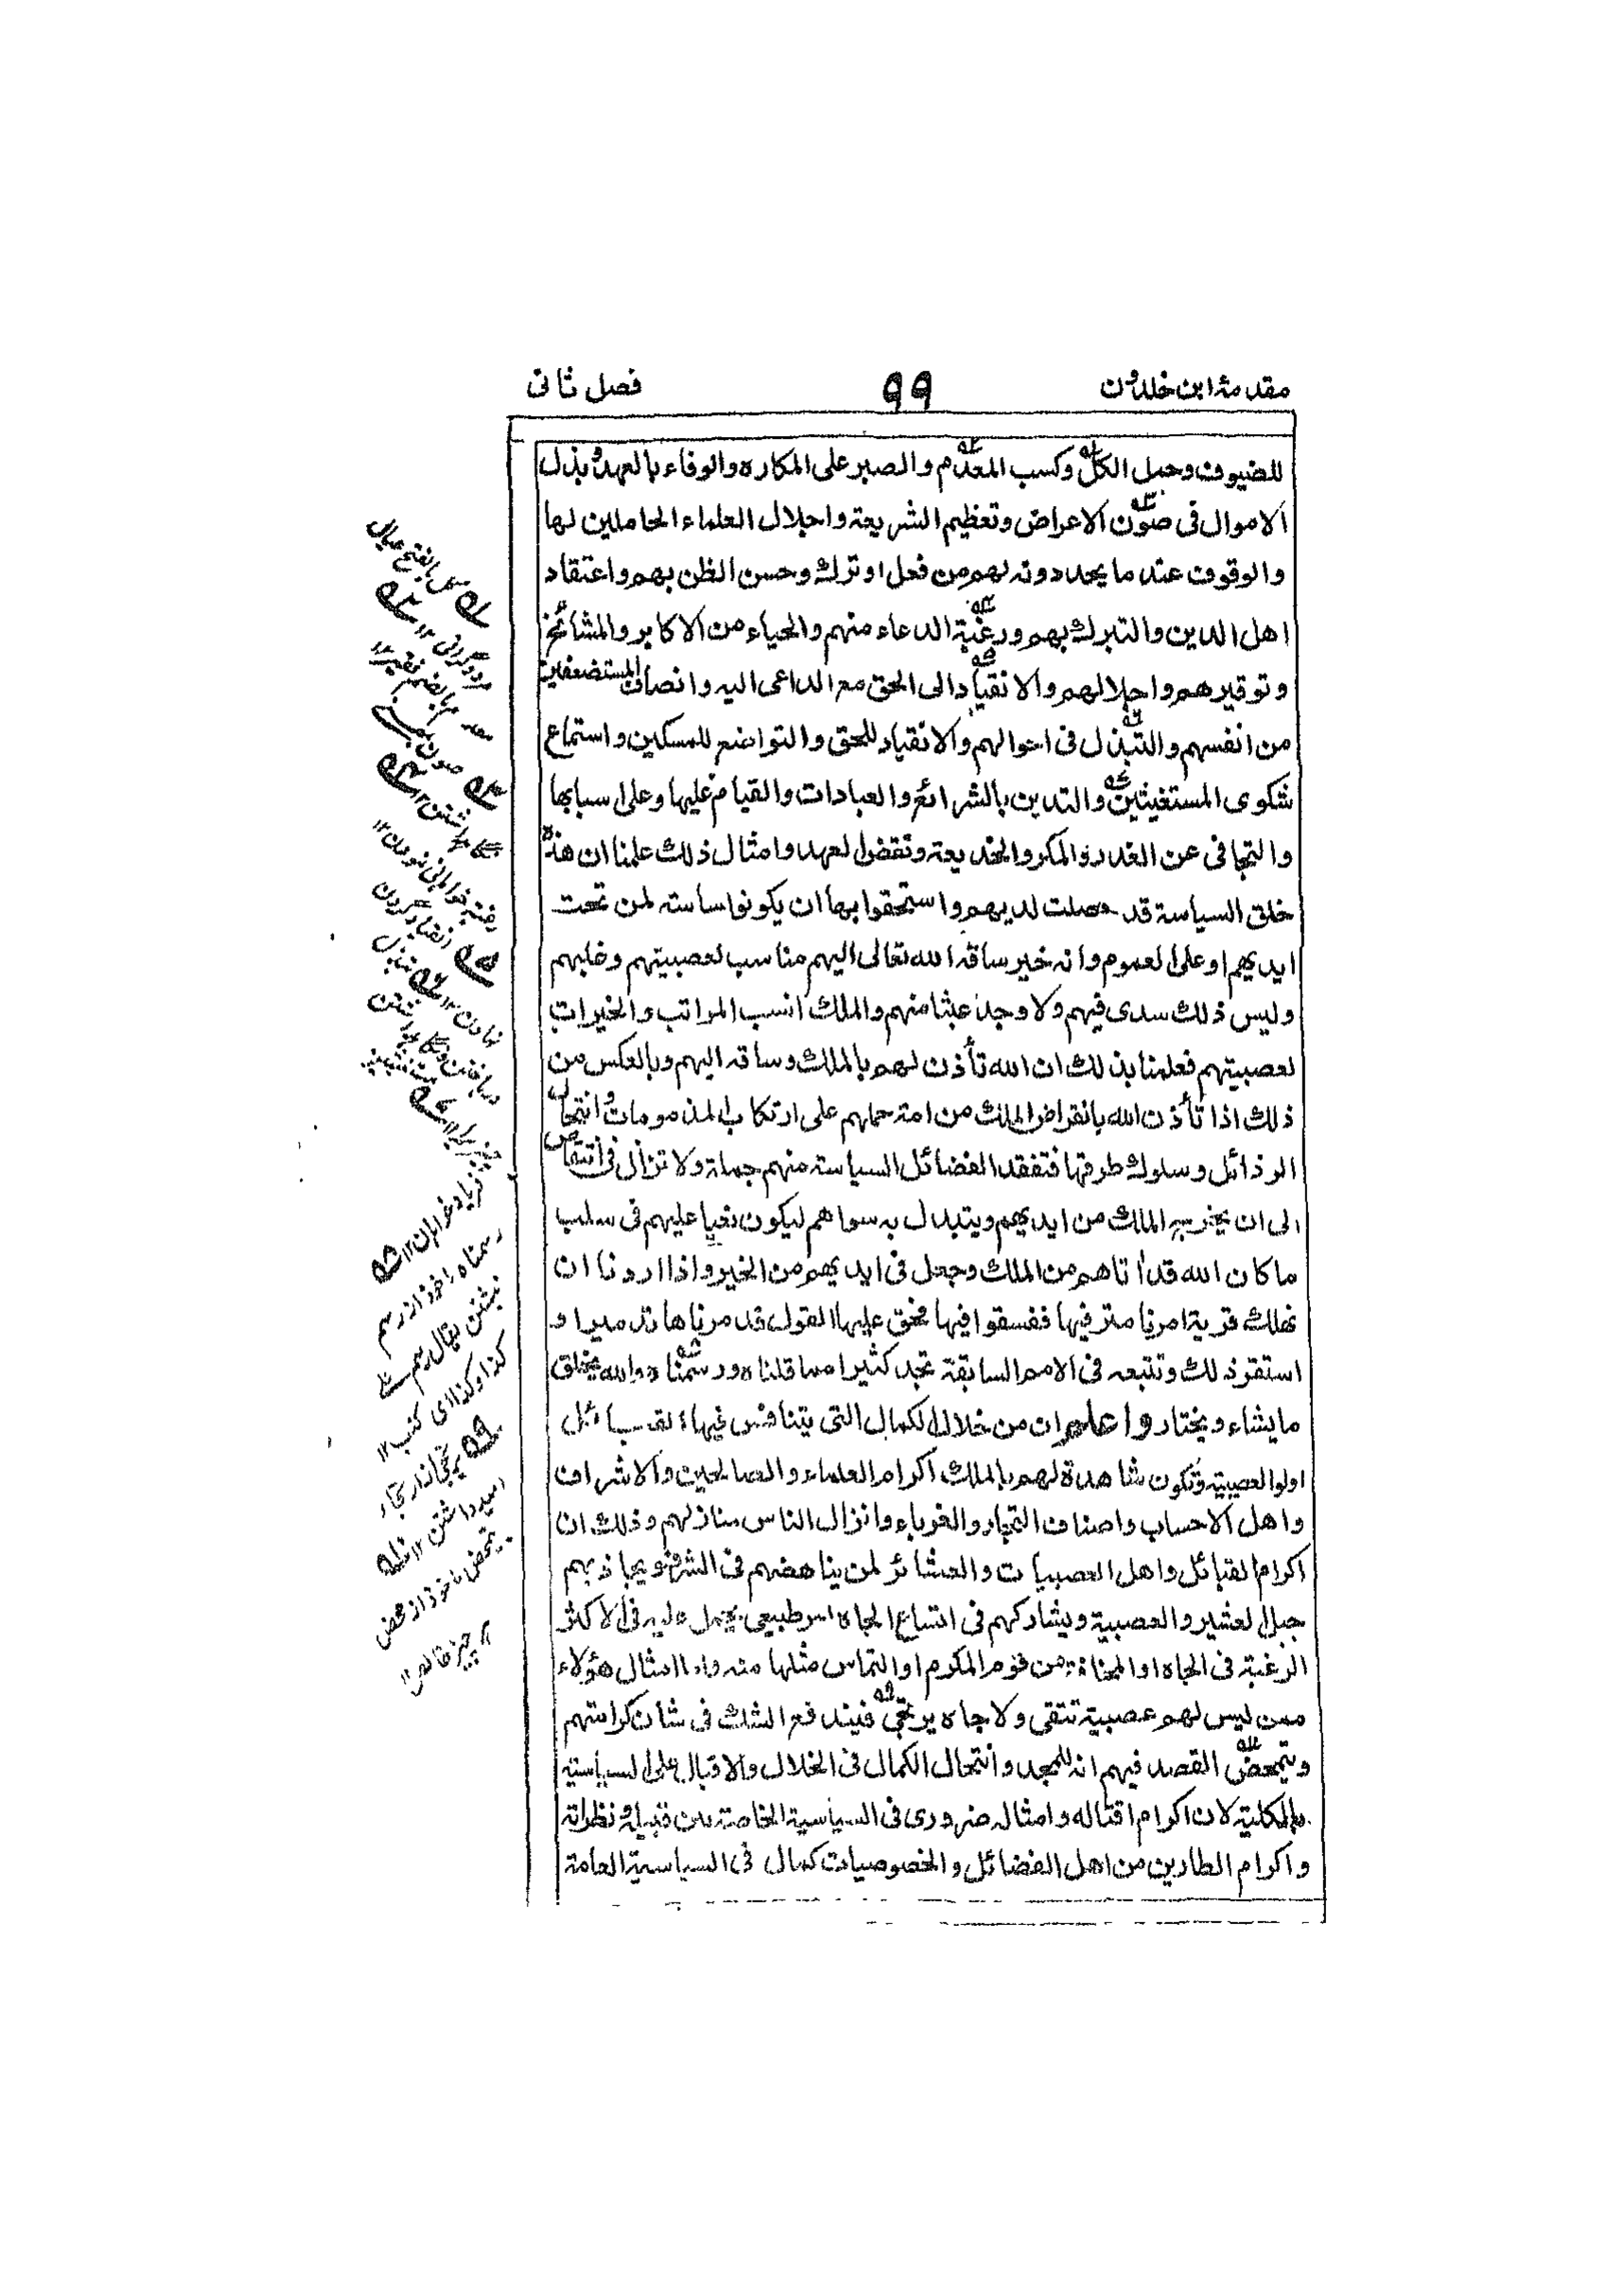 مقدمة ابن خلدون
99
فصل ثانی
للضيوف وحمل الكل وكسب المعدم والصبر على المكاره والوفاء بالعهد وبذل
الاموال فى صون الاعراض وتعظيم الشريعة واجلال العلماء الحاملين لها
والوقوف عند ما يحددونه لهم من فعل او ترك وحسن الظن بهم واعتقاد
اهل الدين والتبرك بهم ورغبة الدعاء منهم والحياء من الاكابر والمشائخ
وتوقيرهم واجلالهم والانقياد الى الحق مع الداعى اليه وانصاف المستضعفين
من انفسهم والتبذل فى احوالهم والانقياد للحق والتواضع للمسكين واستماع
شكوى المستغيثين والتدين بالشرائع والعبادات والقيام عليها وعلى اسبابها
والتجافى عن الغدر والمكر والخديعة ونقض العهد وامثال ذلك علمنا ان هذه
خلق السياسة قد حصلت لديهم واستحقوا بها ان يكونوا ساسة لمن تحت
ايديهم او على العموم وانه خير ساقه الله تعالى اليهم مناسب لعصبيتهم وغلبهم
وليس ذلك سدى فيهم ولا وجد عبثا منهم والملك انسب المراتب والخيرات
لعصبيتهم فعلمنا بذلك ان الله تأذن لهم بالملك وساقه اليهم وبالعكس من
ذلك اذا تأذن الله بانقراض الملك من امة حملهم على ارتكاب المذمومات وانتحال
الرذائل وسلوك طرقها فتفقد الفضائل السياسة منهم جملة ولا تزال فى انتقاص
الى ان يخرج الملك من ايديهم ويتبدل به سواهم ليكون نعيا عليهم فى سلب
ما كان الله قد أتاهم من الملك وجعل فى ايديهم من الخير واذا اردنا ان
نهلك قرية امرنا مترفيها ففسقوا فيها فحق عليها القول فدمرناها تدميرا و
استقرذلك وتتبعه فى الامم السابقة تجد كثيرا مما قلناه ورسمناه والله يخلق
ما يشاء ويختار واعلم ان من خلال الكمال التى يتنافس فيها القبائل
اولوا العصبية وتكون شاهدة لهم بالملك اكرام العلماء والصالحين والاشراف
واهل الاحساب واصناف التجار والغرباء وانزال الناس منازلهم وذلك ان
اكرام القبائل واهل العصبيات والعشائر لمن يناهضهم فى الشرف ويجاذبهم
حبل العشير والعصبية ويشاركهم فى اتساع الجاه امر طبيعى يحمل عليه فى الاكثر
الرغبة فى الجاه او المخافة من قوم المكرم او التماس مثلها منه واما امثال هؤلاء
ممن ليس لهم عصبية تتقى ولا جاه يرتجى فيندفع الشك فى شان كرامتهم
ويتمحض القصد فيهم انه للمجد وانتحال الكمال فى الخلال والاقبال على السياسية
بالكلية لان اكرام اقتاله وامثاله ضرورى فى السياسية الخاصة بين قبيله ونظرائه
واكرام الطارين من اهل الفضائل والخصوصيات كمال فى السياسية العامة
رسمناه ماخوذ از رسم
نبشتن يقال رسم
كذا وكذا اى كتب ١٢
اميد داشتن ١٢
يتمحض ماخوذ از محض
هر چيز خالص ١٢